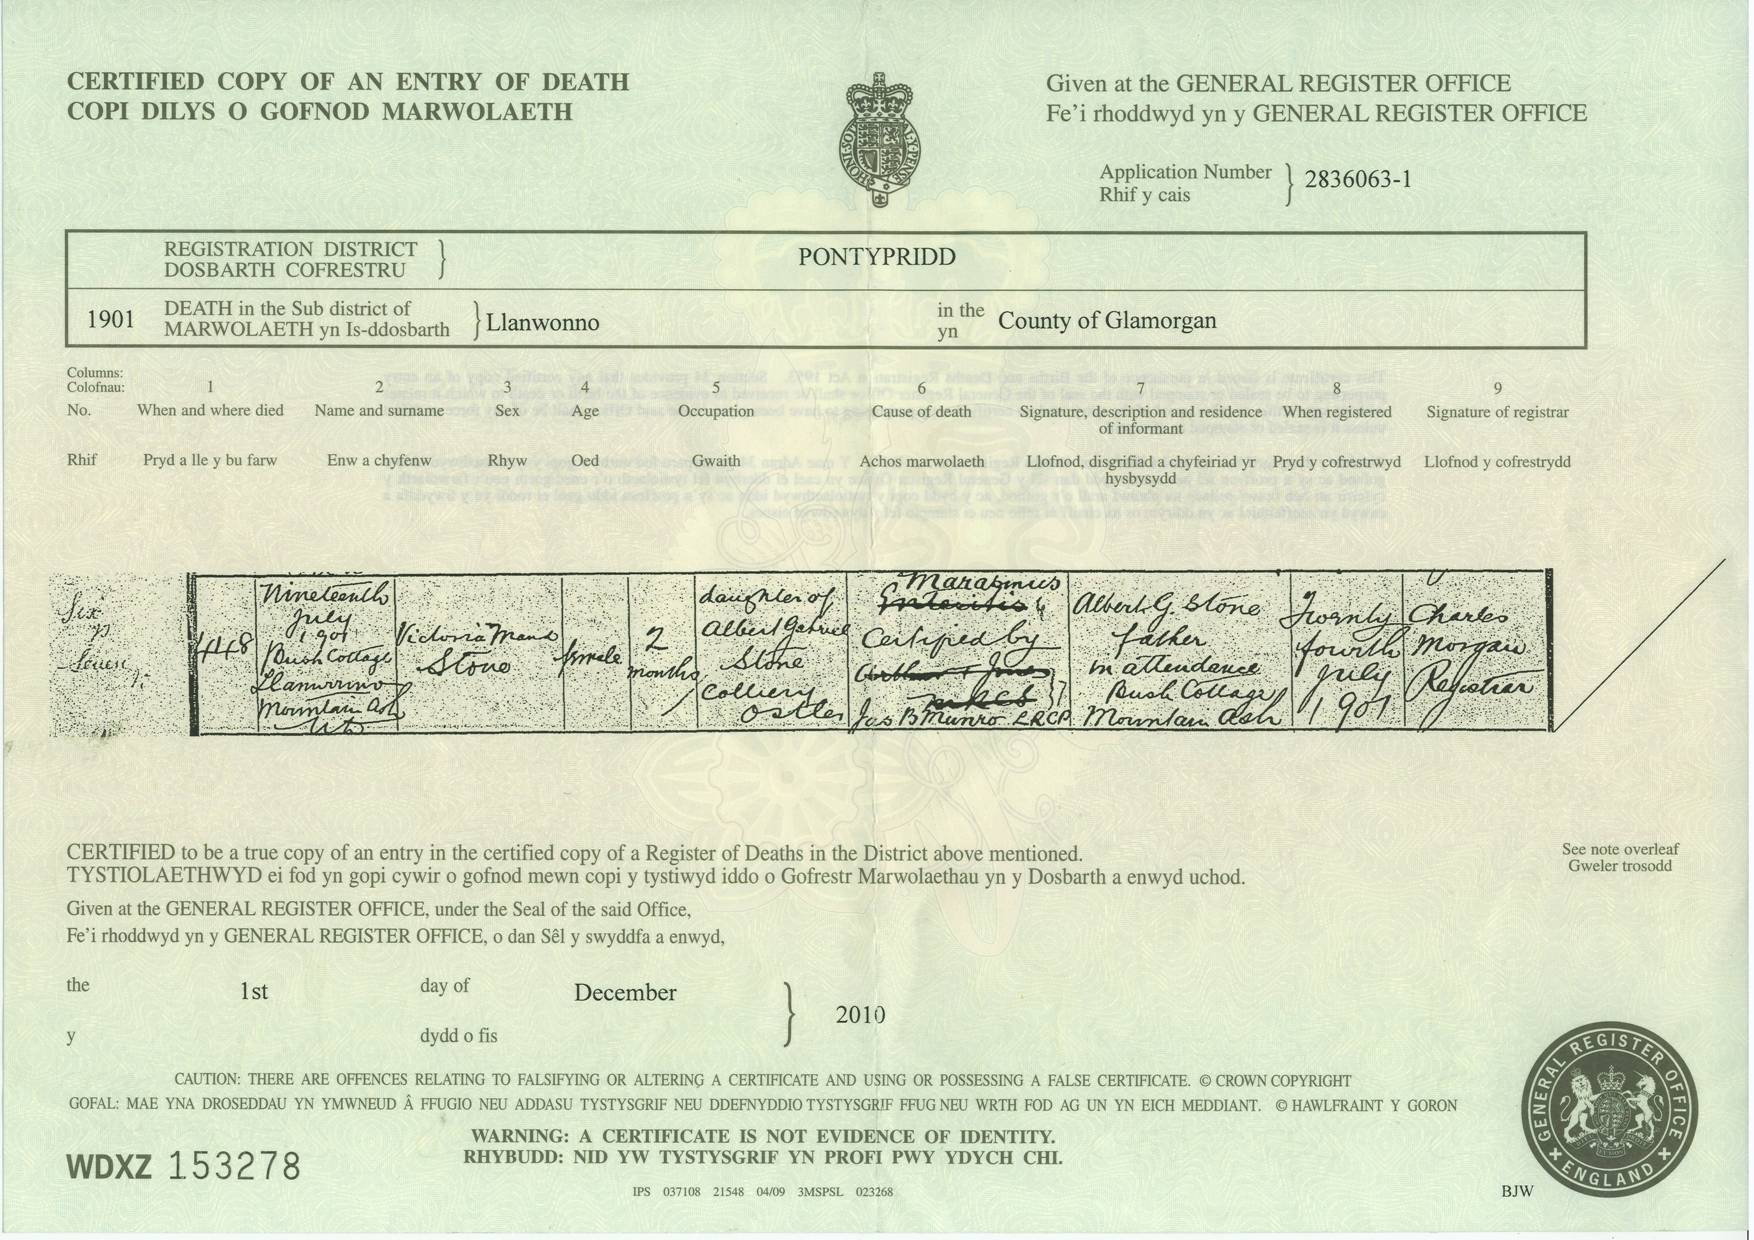 CERTIFIED COPY OF AN ENTRY OF DEATH
COPI DILYS O GOFNOD MARWOLAETH
HONI SOIT QUI MAL Y PENSE
Given at the GENERAL REGISTER OFFICE
Fe'i rhoddwyd yn y GENERAL REGISTER OFFICE
Application Number
Rhif y cais
2836063-1
REGISTRATION DISTRICT
DOSBARTH COFRESTRU
PONTYPRIDD
1901
DEATH in the Sub district of
MARWOLAETH yn Is-ddosbarth
Llanwonno
in the
yn
County of Glamorgan
Columns:
Colofnau:
1 2 3 4 5 6 7 8 9
No.
When and where died
Name and surname
Sex
Age
Occupation
Cause of death
Signature, description and residence
of informant
When registered
Signature of registrar
Rhif
Pryd a lle y bu farw
Enw a chyfenw
Rhyw
Oed
Gwaith
Achos marwolaeth
Llofnod, disgrifiad a chyfeiriad yr
hysbysydd
Pryd y cofrestrwyd
Llofnod y cofrestrydd
Six
448
Nineteenth
July
1901
Bush Cottage
Llanwonno
Mountain Ash
Victoria Maud
Stone
female
2
months
daughter of
Albert Gabriel
Stone
Colliery
Ostler
Marasmus
Enteritis
Certified by
Arthur T Jones
MRCS
Jas B Munro LRCP
Albert G. Stone
father
in attendance
Bush Cottage
Mountain Ash
Twenty
fourth
July
1901
Charles
Morgan
Registrar
CERTIFIED to be a true copy of an entry in the certified copy of a Register of Deaths in the District above mentioned.
TYSTIOLAETHWYD ei fod yn gopi cywir o gofnod mewn copi y tystiwyd iddo o Gofrestr Marwolaethau yn y Dosbarth a enwyd uchod.
See note overleaf
Gweler trosodd
Given at the GENERAL REGISTER OFFICE, under the Seal of the said Office,
Fe'i rhoddwyd yn y GENERAL REGISTER OFFICE, o dan Sêl y swyddfa a enwyd,
the
1st
day of
December
2010
y
dydd o fis
CAUTION: THERE ARE OFFENCES RELATING TO FALSIFYING OR ALTERING A CERTIFICATE AND USING OR POSSESSING A FALSE CERTIFICATE. © CROWN COPYRIGHT
GOFAL: MAE YNA DROSEDDAU YN YMWNEUD Â FFUGIO NEU ADDASU TYSTYSGRIF NEU DDEFNYDDIO TYSTYSGRIF FFUG NEU WRTH FOD AG UN YN EICH MEDDIANT. © HAWLFRAINT Y GORON
WARNING: A CERTIFICATE IS NOT EVIDENCE OF IDENTITY.
RHYBUDD: NID YW TYSTYSGRIF YN PROFI PWY YDYCH CHI.
WDXZ 153278
IPS 037108 21548 04/09 3MSPSL 023268
BJW
GENERAL REGISTER OFFICE
ENGLAND